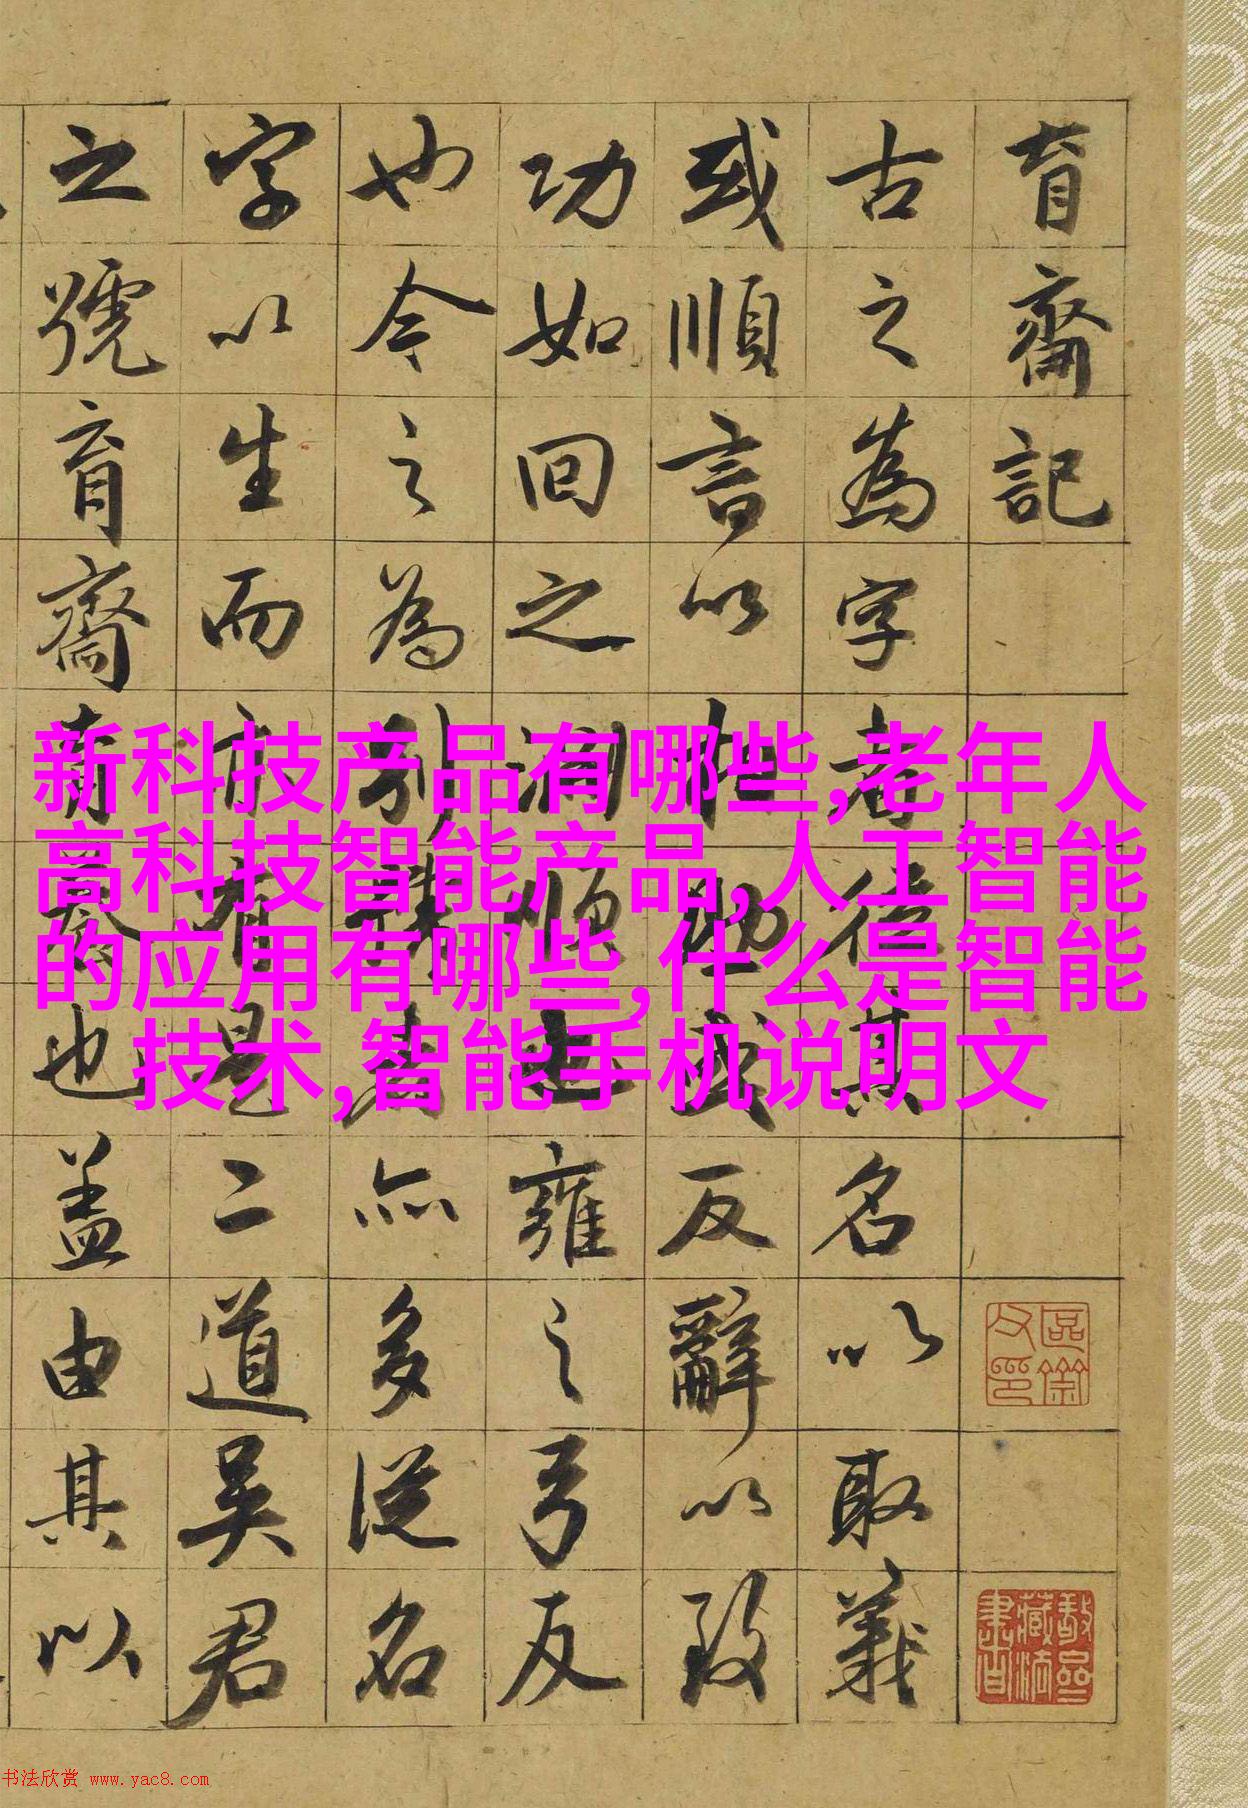 育齋記
古之為字者從其名以取義
或順言以相或反辭以致
功如回之淵順也雍之弓反
也今之為別號者亦多從名
字以生而亦有是二道吳君
之號育齋也盖由其以
新科技产品有哪些,老年人
高科技智能产品,人工智能
的应用有哪些,什么是智能
技术,智能手机说明文
书法欣赏 www.yac8.com